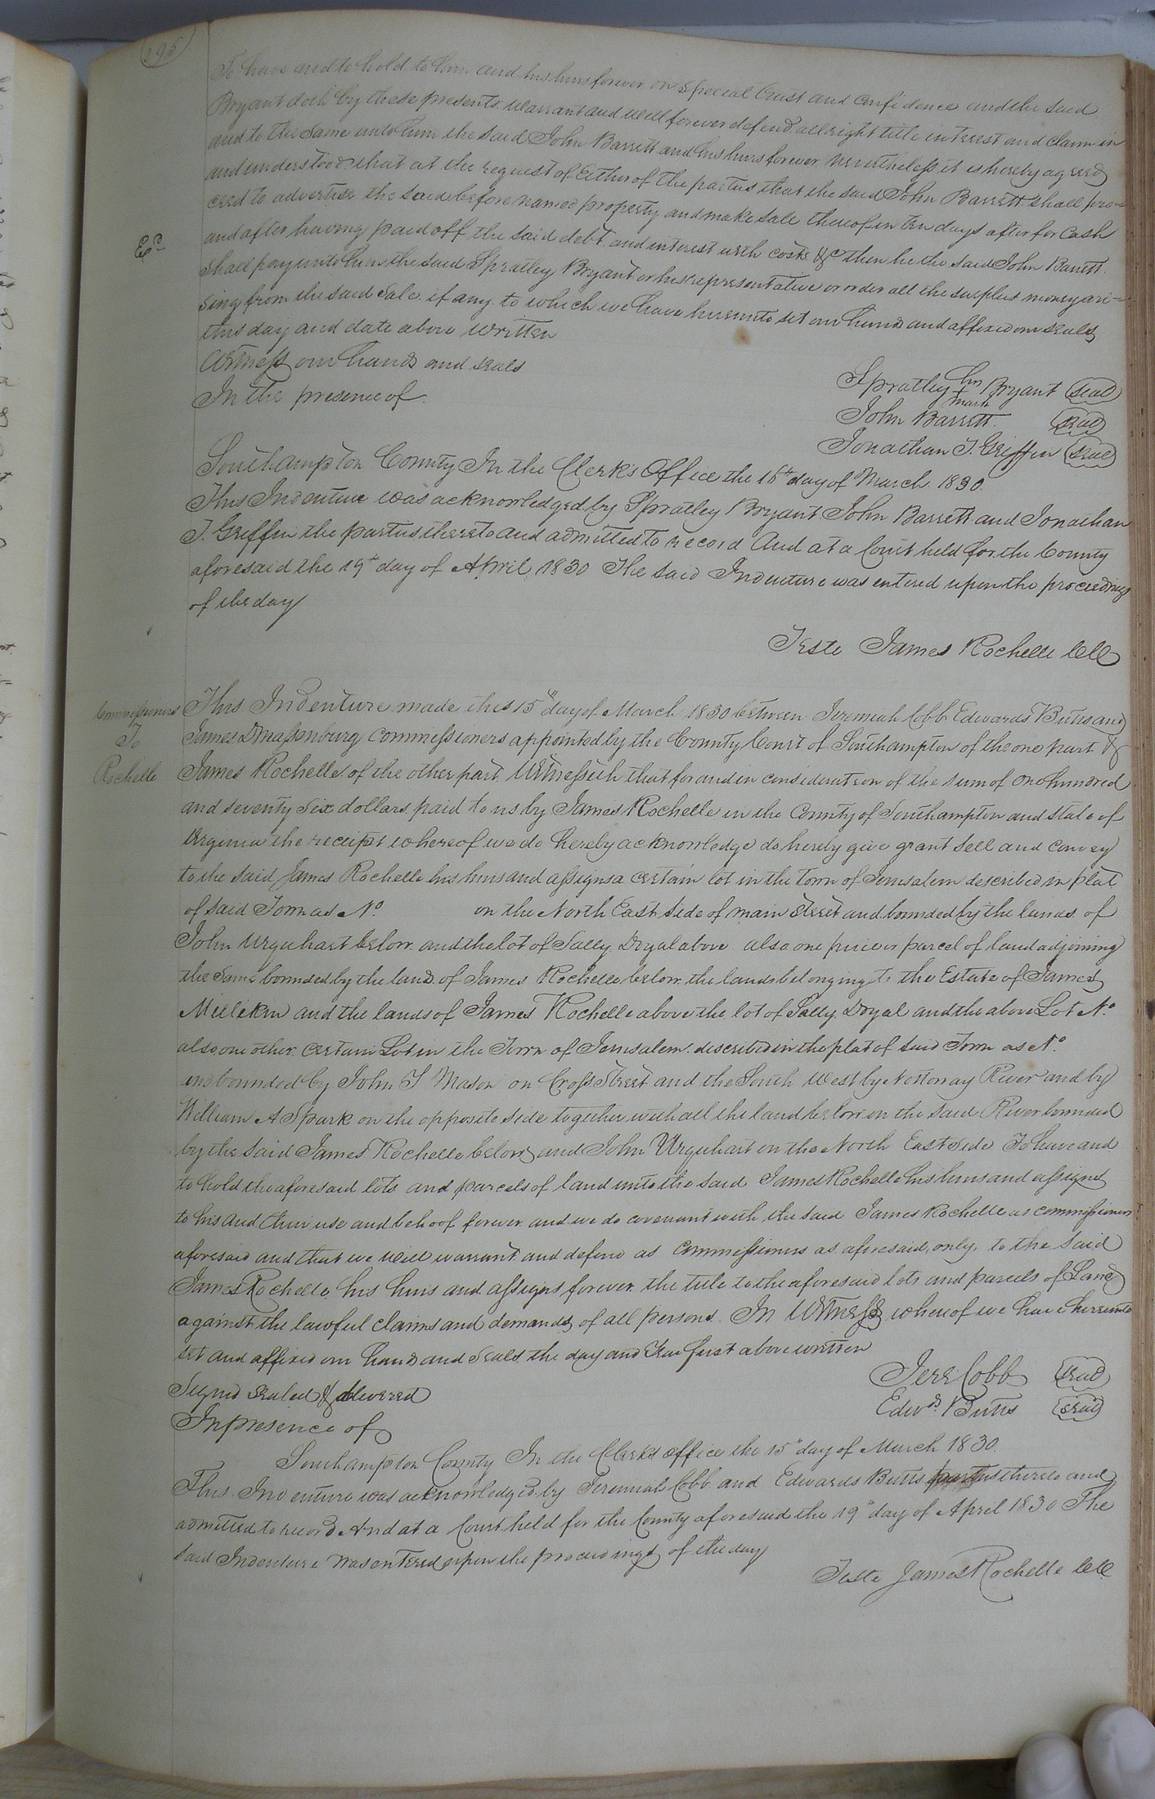 295
To have and to hold to him and his heirs forever on special trust and confidence and the said
Bryant doth by these presents warrant and will forever defend all right title interest and claim in
and to the same unto him the said John Barrett and his heirs forever nevertheless it is hereby agreed
and understood that at the request of Either of the parties that the said John Barrett shall pro=
ceed to advertise the said before named property and make sale thereof in ten days after for Cash
and after having paid off the said debt and interest with costs &c then he the said John Barrett
Exd
shall pay unto him the said Spratley Bryant or his representative or order all the surplus money ari=
sing from the said sale if any to which we have hereunto set our hands and affixed our seals
this day and date above written
Witness our hands and seals
In the presence of
Spratley his mark Bryant (seal)
John Barrett (seal)
Jonathan T. Griffin (seal)
Southampton County In the Clerk's Office the 16th day of March 1830
This Indenture was acknowledged by Spratley Bryant John Barrett and Jonathan
T. Griffin the parties thereto and admitted to record And at a Court held for the County
aforesaid the 19th day of April 1830 The said Indenture was entered upon the proceedings
of the day
Teste James Rochelle Clk
Commissioners
To
Rochelle
This Indenture made this 15th day of March 1830 between Jeremiah Cobb Edwards Butts and
James D Massenburg Commissioners appointed by the County Court of Southampton of the one part &
James Rochelle of the other part Witnesseth that for and in consideration of the sum of one hundred
and seventy six dollars paid to us by James Rochelle in the County of Southampton and state of
Virginia the receipt whereof we do hereby acknowledge do hereby give grant sell and convey
to the said James Rochelle his heirs and assigns a certain lot in the town of Jerusalem described in plat
of said Town as No on the North East side of main street and bounded by the lands of
John Urquhart below and the lot of Sally Doyal above also one piece or parcel of land adjoining
the same bounded by the land of James Rochelle below the lands belonging to the Estate of James
Millikin and the lands of James Rochelle above the lot of Sally Doyal and the above Lot No
also one other certain Lot in the Town of Jerusalem described in the plat of said Town as No
and bounded by John T Mason on Cross Street and the South West by Nottoway River and by
William A Spark on the opposite side together with all the land below on the said River bounded
by the said James Rochelle below and John Urquhart on the North East side To have and
to hold the aforesaid lots and parcels of land unto the said James Rochelle his heirs and assigns
to his and their use and behoof forever and we do covenant with the said James Rochelle as commissioners
aforesaid and that we will warrant and defend as Commissioners as aforesaid only, to the said
James Rochelle his heirs and assigns forever the title to the aforesaid lots and parcels of Land
against the lawful claims and demands of all persons In Witness whereof we have hereunto
set and affixed our hands and seals the day and Year first above written
Jere Cobb (seal)
Signed sealed & delivered
Edwds Butts (seal)
In presence of
Southampton County In the Clerks office the 15th day of March 1830
This Indenture was acknowledged by Jeremiah Cobb and Edwards Butts parties thereto and
admitted to record And at a Court held for the County aforesaid the 19th day of April 1830 The
said Indenture was entered upon the proceedings of the day
Teste James Rochelle Clk